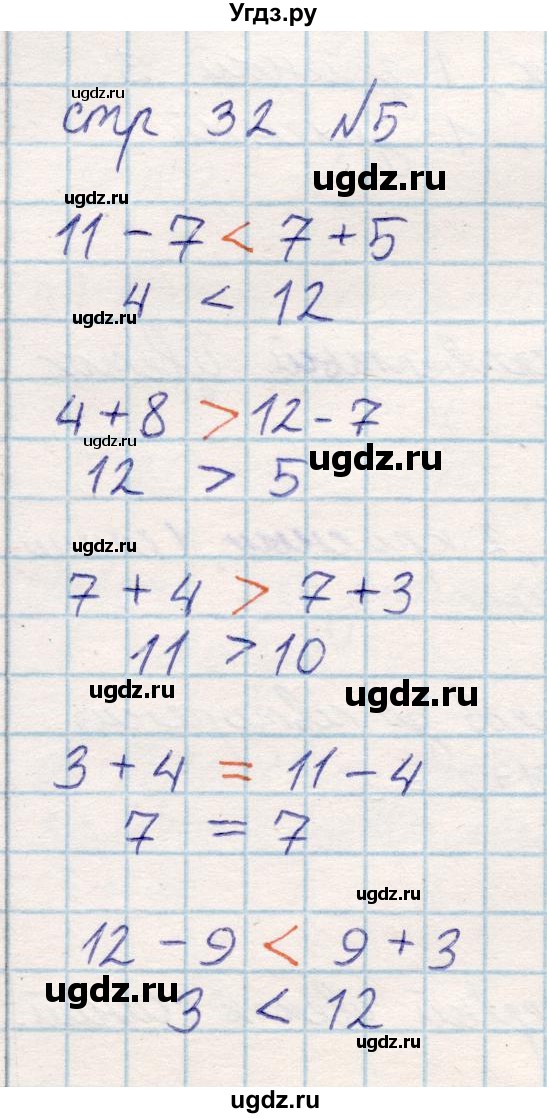 Угдз.ру
стр 32 №5
ugdz.ru
ugdz.ru
11 - 7 < 7 + 5
4 < 12
ugdz.ru
4 + 8 > 12 - 7
ugdz.ru
ugdz.ru
12 > 5
ugdz.ru
7 + 4 > 7 + 3
11 > 10
ugdz.ru
ugdz.ru
3 + 4 = 11 - 4
7 = 7
ugdz.ru
12 - 9 < 9 + 3
ugdz.ru
3 < 12
ugdz.ru
ugdz.ru